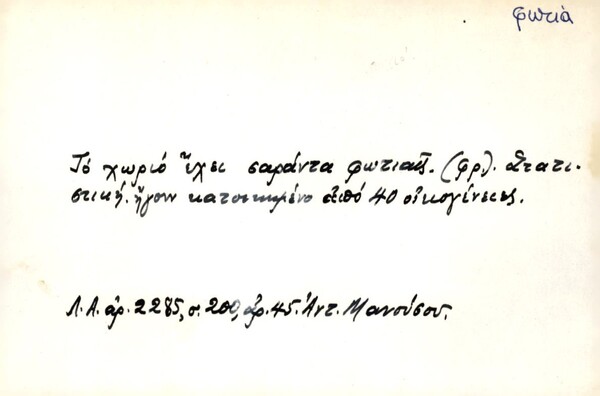 φωτιά
Τό χωριό ἔχει σαράντα φωτιαῖς. (φρ). Στατι-
στική. ἤγουν κατοικημένο ἀπό 40 οἰκογένειες.
Λ.Α. ἀρ. 2285, σ. 200, ἀρ. 45. Ἀντ. Μανούσου.